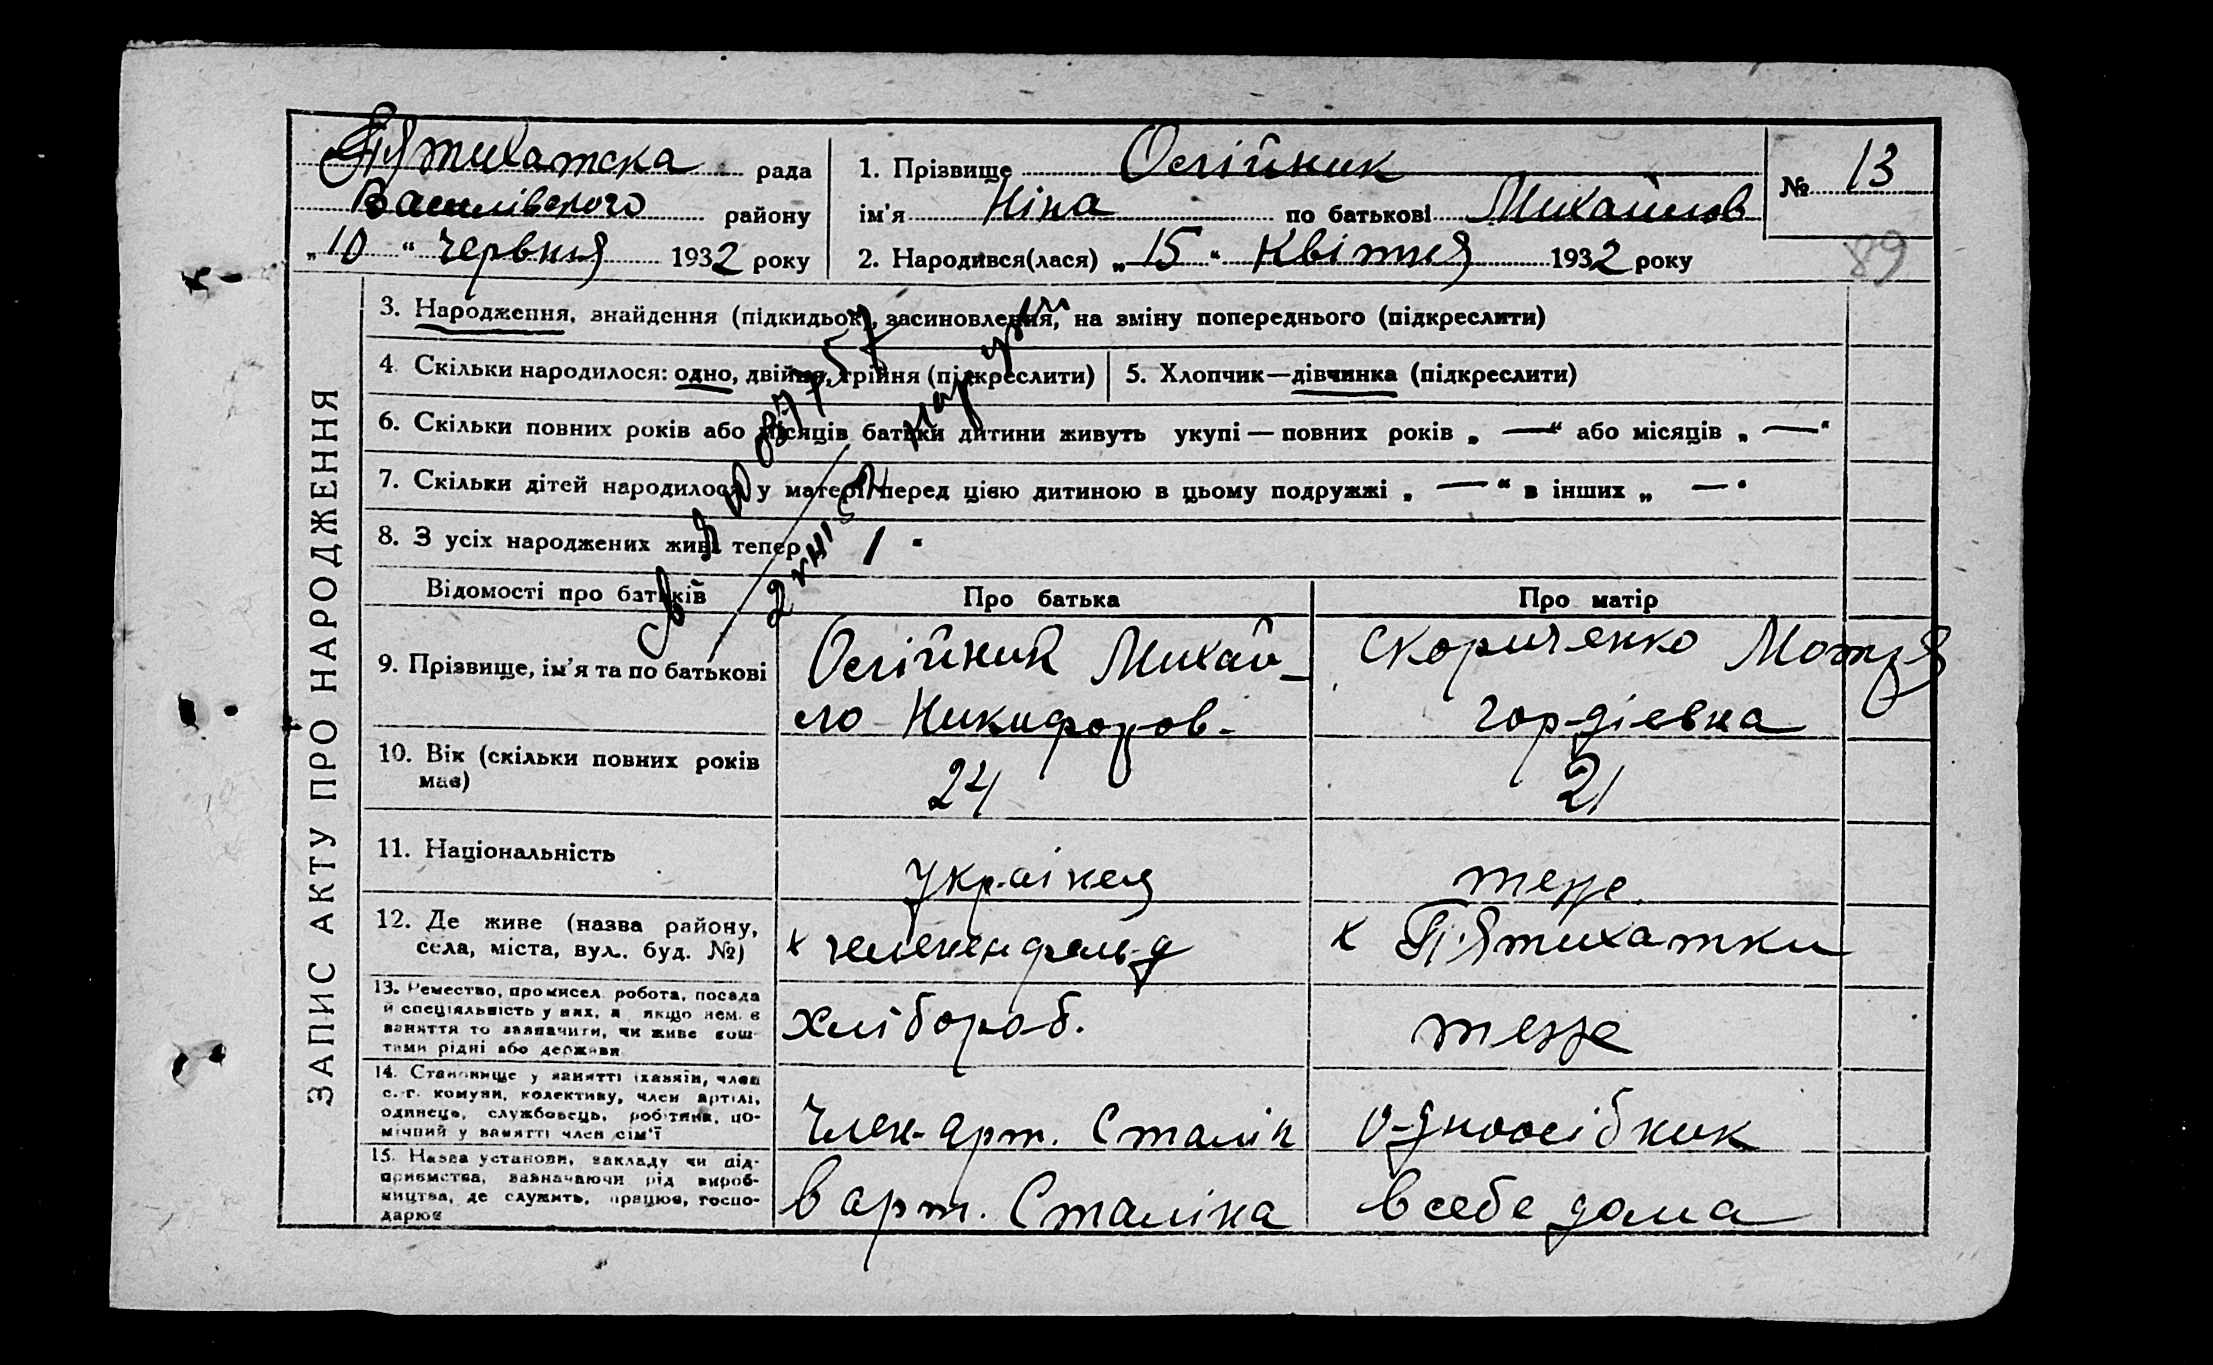 П'ятихатска рада
Василівского району
„10“ червня 1932 року
1. Прізвище Олійник
ім'я Ніна по батькові Михайлов
2. Народився(лася) „15“ Квітня 1932 року
№ 13
89
ЗАПИС АКТУ ПРО НАРОДЖЕННЯ
3. Народження, знайдення (підкидьок), засиновлення, на зміну попереднього (підкреслити)
4. Скільки народилося: одно, двійня, трійня (підкреслити)
5. Хлопчик—дівчинка (підкреслити)
6. Скільки повних років або місяців батьки дитини живуть укупі — повних років „ — “ або місяців „ — “
7. Скільки дітей народилося у матері перед цією дитиною в цьому подружжі „ — “ в інших „ — “
8. З усіх народжених живі тепер 1
Відомості про батьків
Про батька
Про матір
9. Прізвище, ім'я та по батькові
Олійник Михай-
ло Никифоров-
Скориченко Мотря
Гордіевна
10. Вік (скільки повних років
має)
24
21
11. Національність
Українец
теже
12. Де живе (назва району,
села, міста, вул. буд. №)
х
х П'ятихатки
13. Ремество, промисел, робота, посада
й спеціяльність у них, а якщо нем. є
заняття то зазначити, чи живе кош-
тами рідні або держави
хлібороб.
теже
14. Становище у занятті (хазяїн, член
с.-г. комуни, колективу, член артілі,
одинець, службовець, робітник, по-
мічний у занятті член сім'ї
Член-арт. Сталін
Одноосібник
15. Назва установи, закладу чи під-
приємства, зазначаючи рід вироб-
ництва, де служить, працює, госпо-
дарює
В арт. Сталіна
В себе дома